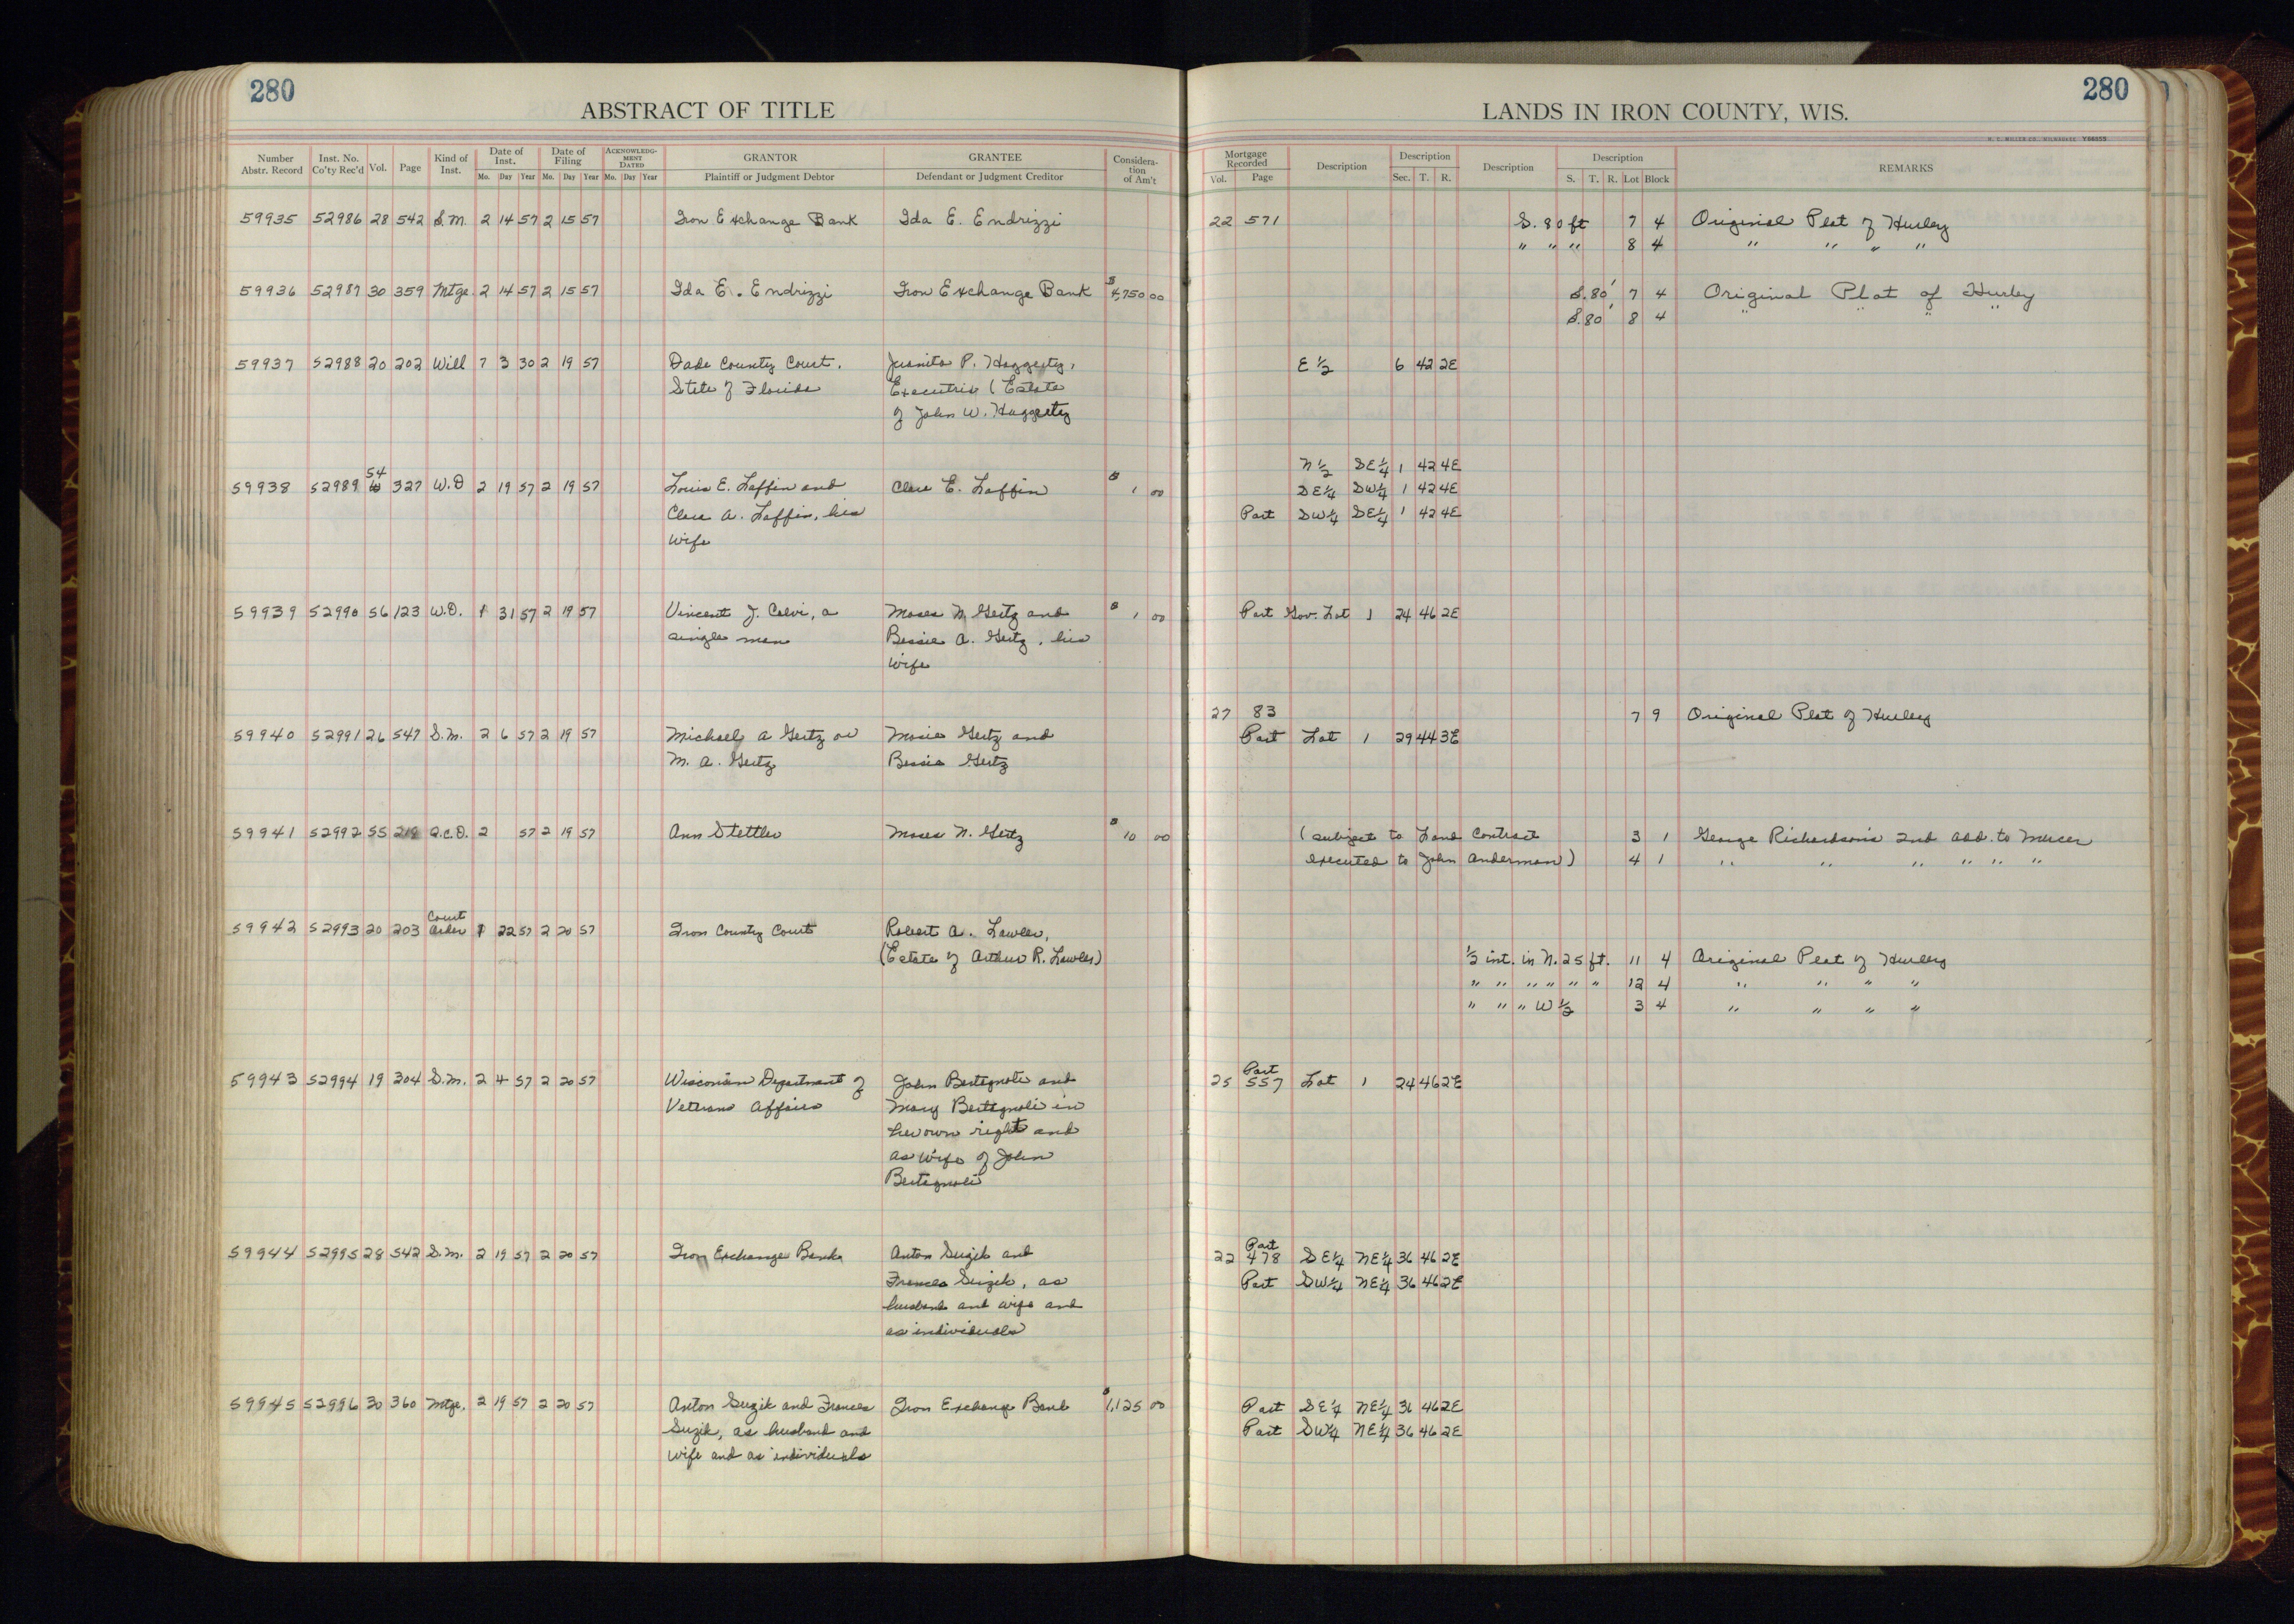 280
280
ABSTRACT OF TITLE
LANDS IN IRON COUNTY, WIS.
H. C. MILLER CO., MILWAUKEE Y66555
Number Abstr. Record Inst. No. Co'ty Rec'd Vol. Page Kind of Inst. Date of Inst. Mo. Day Year Date of Filing Mo. Day Year ACKNOWLEDGMENT DATED Mo. Day Year GRANTOR Plaintiff or Judgment Debtor GRANTEE Defendant or Judgment Creditor Consideration of Am't
Mortgage Recorded Vol. Page Description Description Sec. T. R. Description Description S. T. R. Lot Block REMARKS
59935 52986 28 542 S.M. 2 14 57 2 15 57 Iron Exchange Bank Ida E. Endrizzi 22 571 S. 80 ft 7 4 Original Plat of Hurley
" " " 8 4 " " " "
59936 52987 30 359 Mtge. 2 14 57 2 15 57 Ida E. Endrizzi Iron Exchange Bank $4,750 00 S. 80' 7 4 Original Plat of Hurley
S. 80' 8 4 " " " "
59937 52988 20 202 Will 7 3 30 2 19 57 Dade County Court, Juanita P. Haggerty, E 1/2 6 42 2E
State of Florida Executrix (Estate
of John W. Haggerty
N 1/2 SE 1/4 1 42 4E
59938 52989 54 327 W.D 2 19 57 2 19 57 Louis E. Laffin and Clare E. Laffin $ 1 00 SE 1/4 SW 1/4 1 42 4E
Clara A. Laffin, his Part SW 1/4 SE 1/4 1 42 4E
wife
59939 52990 56 123 W.D. 1 31 57 2 19 57 Vincent J. Calvi, a Moses N. Gertz and $ 1 00 Part Gov. Lot 1 24 46 2E
single man Bessie A. Gertz, his
wife
27 83 7 9 Original Plat of Hurley
59940 52991 26 547 S.M. 2 6 57 2 19 57 Michael A Gertz or Gertz and Part Lot 1 29 44 3E
M. A. Gertz Bessie Gertz
59941 52992 55 219 Q.C.D. 2 57 2 19 57 Ann Stettler Moses N. Gertz $ 10 00 (subject to Land Contract 3 1 George Richardson's 2nd add. to Mercer
executed to John Anderman) 4 1 " " " " " "
59942 52993 20 203 Court Order 1 22 57 2 20 57 Iron County Court Robert A. Lawler,
(Estate of Arthur R. Lawler) 1/2 int. in N. 25 ft. 11 4 Original Plat of Hurley
" " " " " " 12 4 " " " "
" " " W 1/2 3 4 " " " "
Part
59943 52994 19 304 S.M. 2 4 57 2 20 57 Wisconsin Department of John Bertagnoli and 25 557 Lot 1 24 46 2E
Veterans Affairs Mary Bertagnoli in
her own right and
as wife of John
Bertagnoli
Part
59944 52995 28 542 S.M. 2 19 57 2 20 57 Iron Exchange Bank Anton Suzik and 22 478 SE 1/4 NE 1/4 36 46 2E
Frances Suzik, as Part SW 1/4 NE 1/4 36 46 2E
husband and wife and
as individuals
59945 52996 30 360 Mtge. 2 19 57 2 20 57 Anton Suzik and Frances Iron Exchange Bank $1,125 00 Part SE 1/4 NE 1/4 36 46 2E
Suzik, as husband and Part SW 1/4 NE 1/4 36 46 2E
wife and as individuals